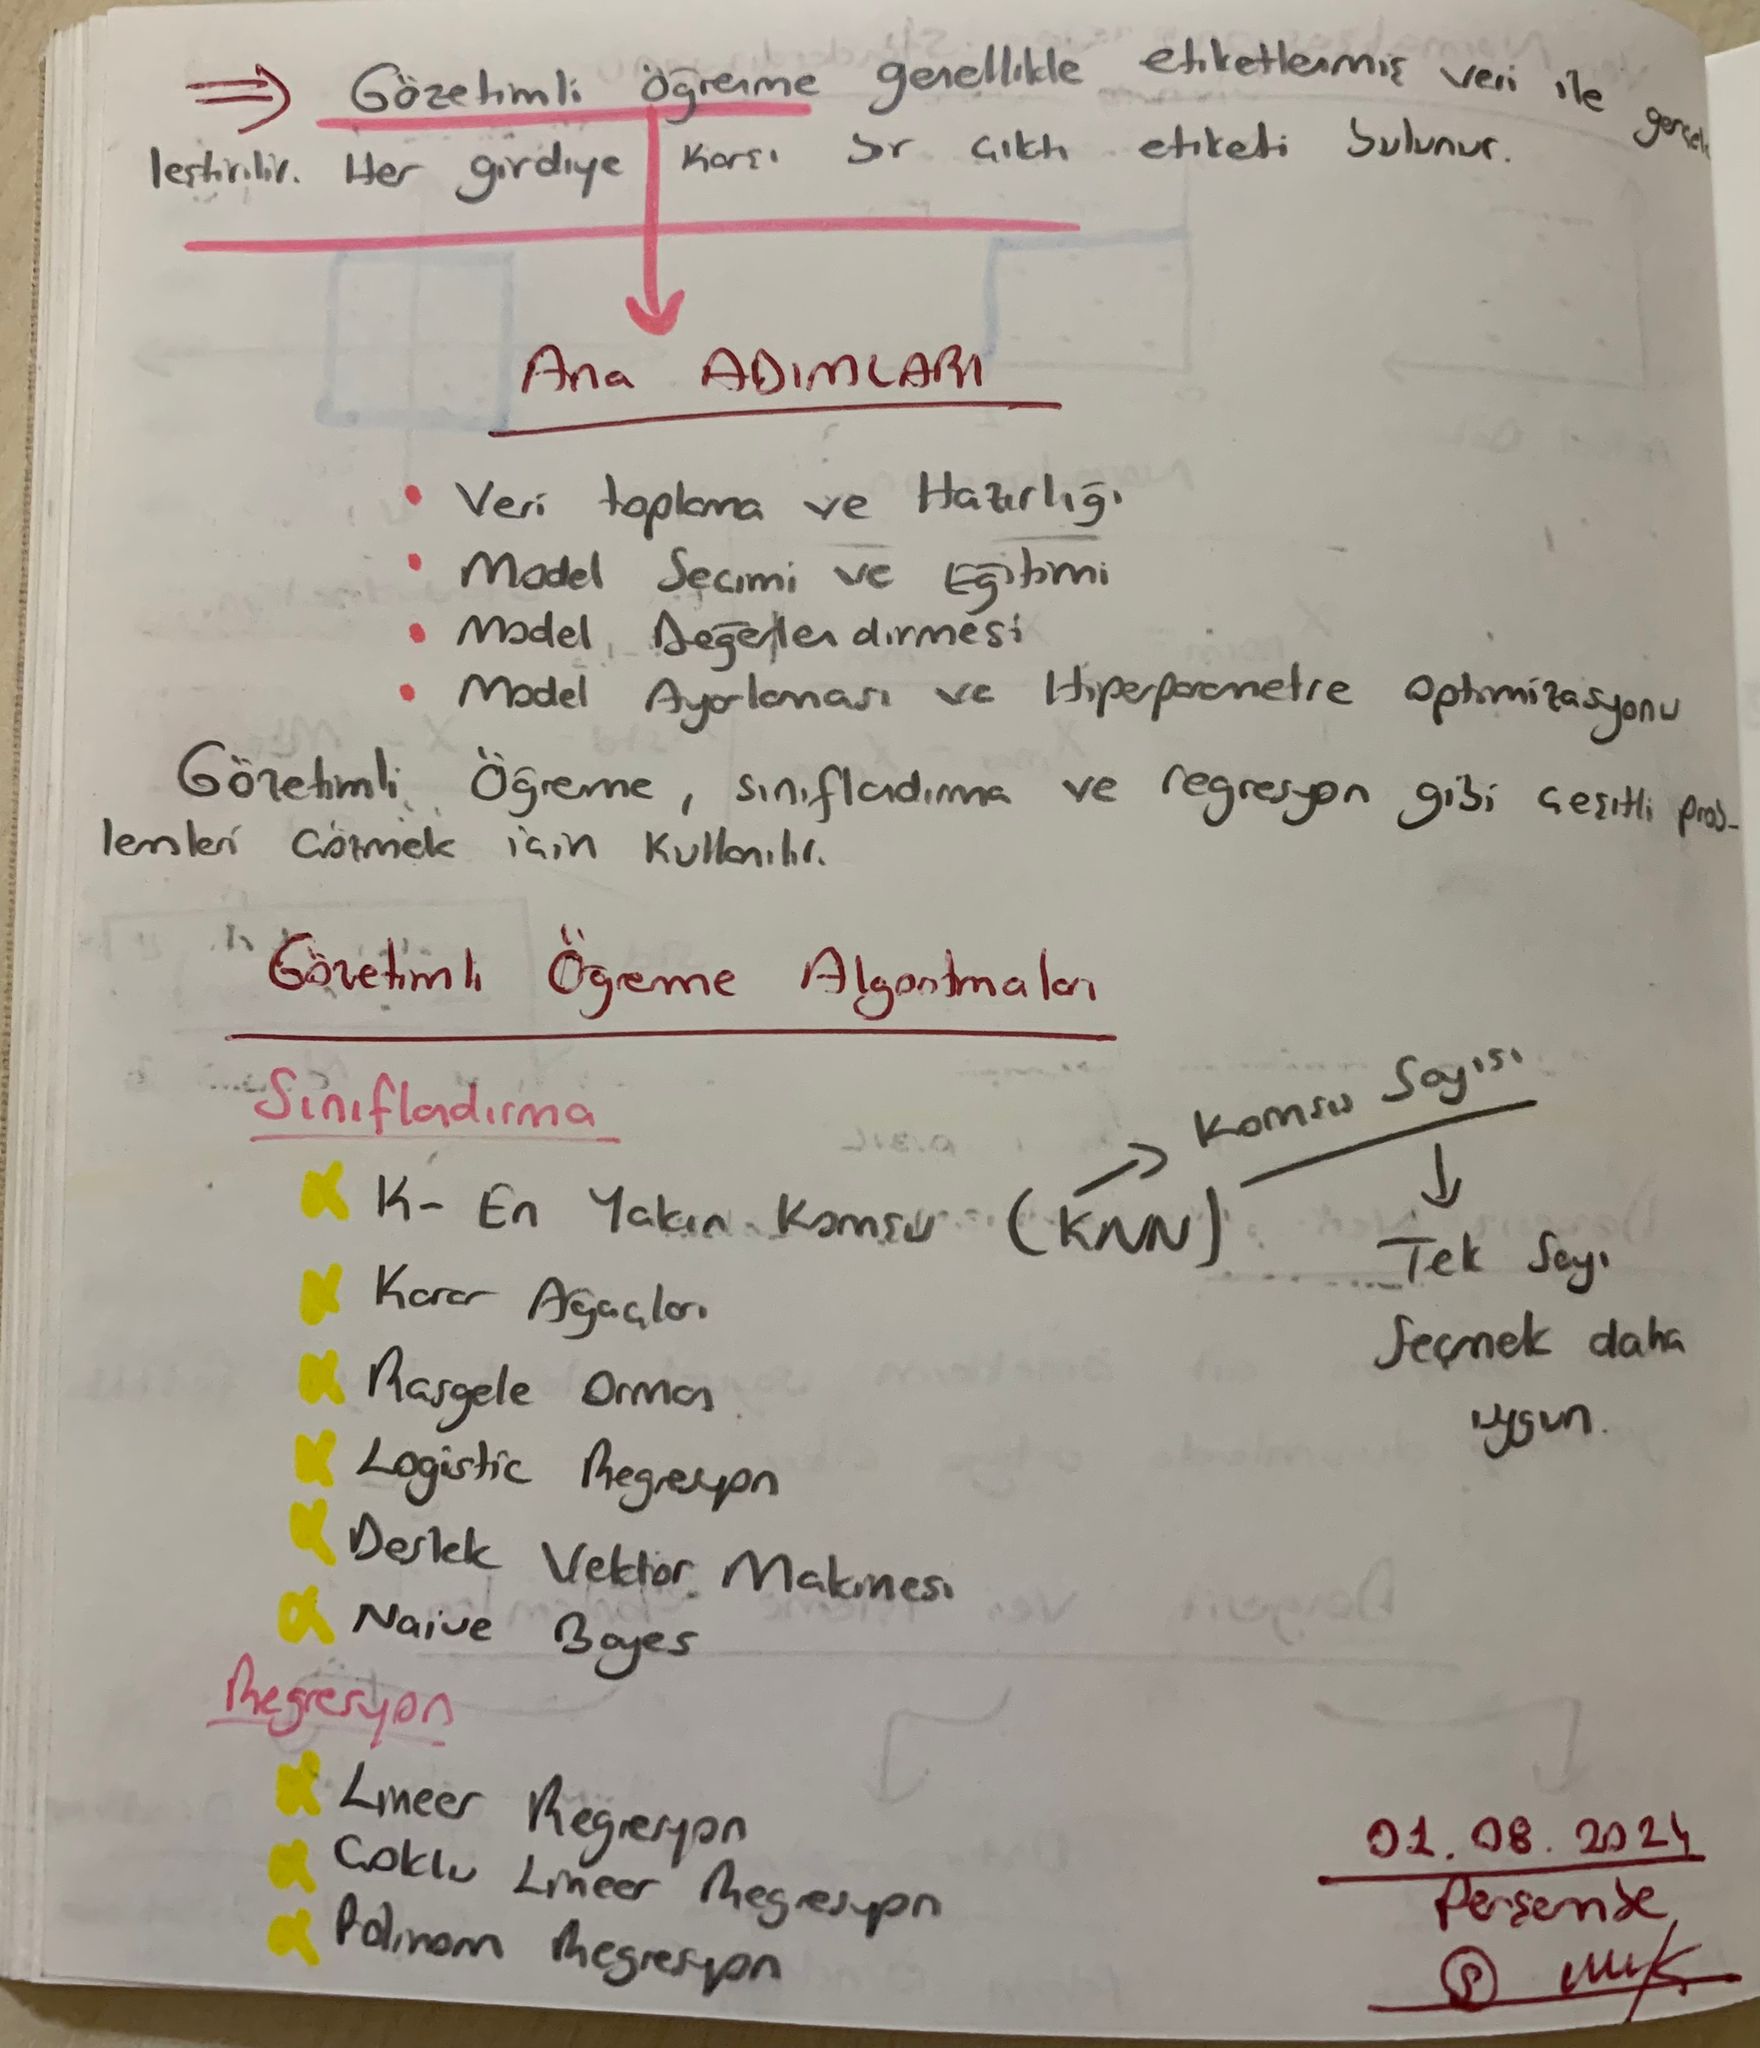 ⇒ Gözetimli Öğrenme genellikle etiketlenmiş veri ile gerçek
leştirilir. Her girdiye karşı bir çıktı etiketi bulunur.
Ana ADIMLARI
• Veri toplama ve Hazırlığı
• Model Seçimi ve Eğitimi
• Model Değerlendirmesi
• Model Ayarlaması ve Hiperparametre Optimizasyonu
Gözetimli Öğreme, sınıfladırma ve regresyon gibi çeşitli prob-
lemleri çözmek için kullanılır.
Gözetimli Öğreme Algoritmaları
Sınıfladırma
K- En Yakın Komşu (KNN) → Komsu Sayısı
Tek Sayı
seçmek daha
uygun.
Karar Ağaçları
Rasgele Orman
Logistic Regresyon
Destek Vektör Makinesi
Naive Bayes
Regresyon
Lineer Regresyon
Çoklu Lineer Regresyon
Polinom Regresyon
01.08.2024
Perşembe